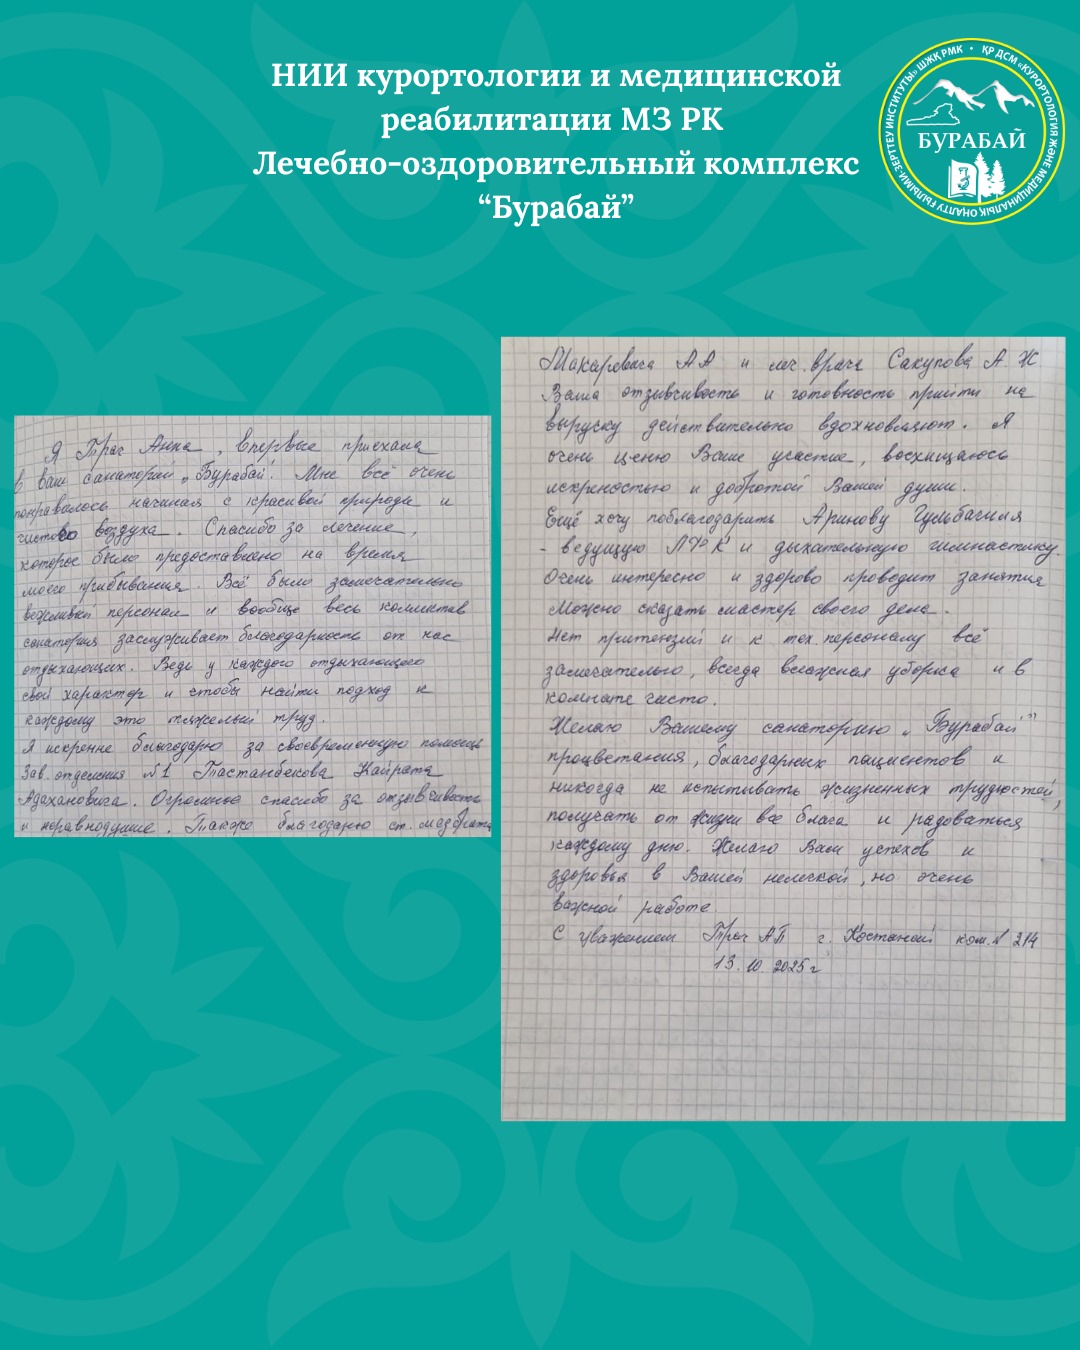 НИИ курортологии и медицинской
реабилитации МЗ РК
Лечебно-оздоровительный комплекс
“Бурабай”
ҚР ДСМ «КУРОРТОЛОГИЯ ЖӘНЕ МЕДИЦИНАЛЫҚ ОҢАЛТУ ҒЫЛЫМИ-ЗЕРТТЕУ ИНСТИТУТЫ» ШЖҚ РМК
БУРАБАЙ
Я Трач Анна, впервые приехала
в ваш санаторий „Бурабай". Мне всё очень
понравалось начиная с красивой природа и
чистово воздуха. Спасибо за лечение,
которое было предоставлено на время
моего прибывания. Всё было замечательно
вежливый персонал и вообще весь коллектив
санатория заслуживает благодарность от нас
отдыхающих. Ведь у каждого отдыхающего
свой характер и чтобы найти подход к
каждому это тяжелый труд.
Я искренне благодарю за своевременную помощь
Зав. отделения №1 Тастанбекова Кайрата
Адахановича. Огромное спасибо за отзывчивость
и неравнодушие. Также благодарю ст. медбрата
Макаровича А А и леч. врача Сакупова А. Ж
Ваша отзывчивость и готовность прийти на
выручку действительно вдохновляют. Я
очень ценю Ваше участие, восхищаюсь
искреностью и добротой Вашей души.
Ещё хочу поблагодарить Аринову Гульбагиля
- ведущую ЛФК и дыхательную гимнастику.
Очень интересно и здорово проводит занятия
Можно сказать мастер своего дела.
Нет притензий и к тех. персоналу всё
замечательно, всегда влажная уборка и в
комнате чисто.
Желаю Вашему санаторию „Бурабай"
процветания, благодарных пациентов и
никогда не испытывать жизненных трудностей,
получать от жизни все блага и радоваться
каждому дню. Желаю Вам успехов и
здоровья в Вашей нелегкой, но очень
важной работе
С уважением Трач АП г. Костанай ком. № 214
13. 10. 2025 г